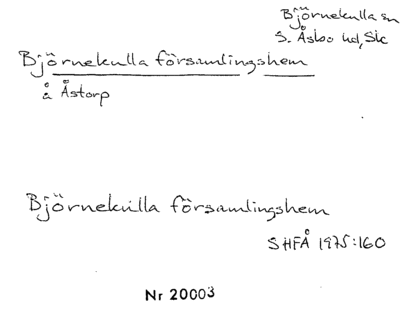 Björnekulla sn
S. Åsbo hd, Sk
Björnekulla församlingshem
å Åstorp
Björnekulla församlingshem
SHFÅ 1975:160
Nr 20003